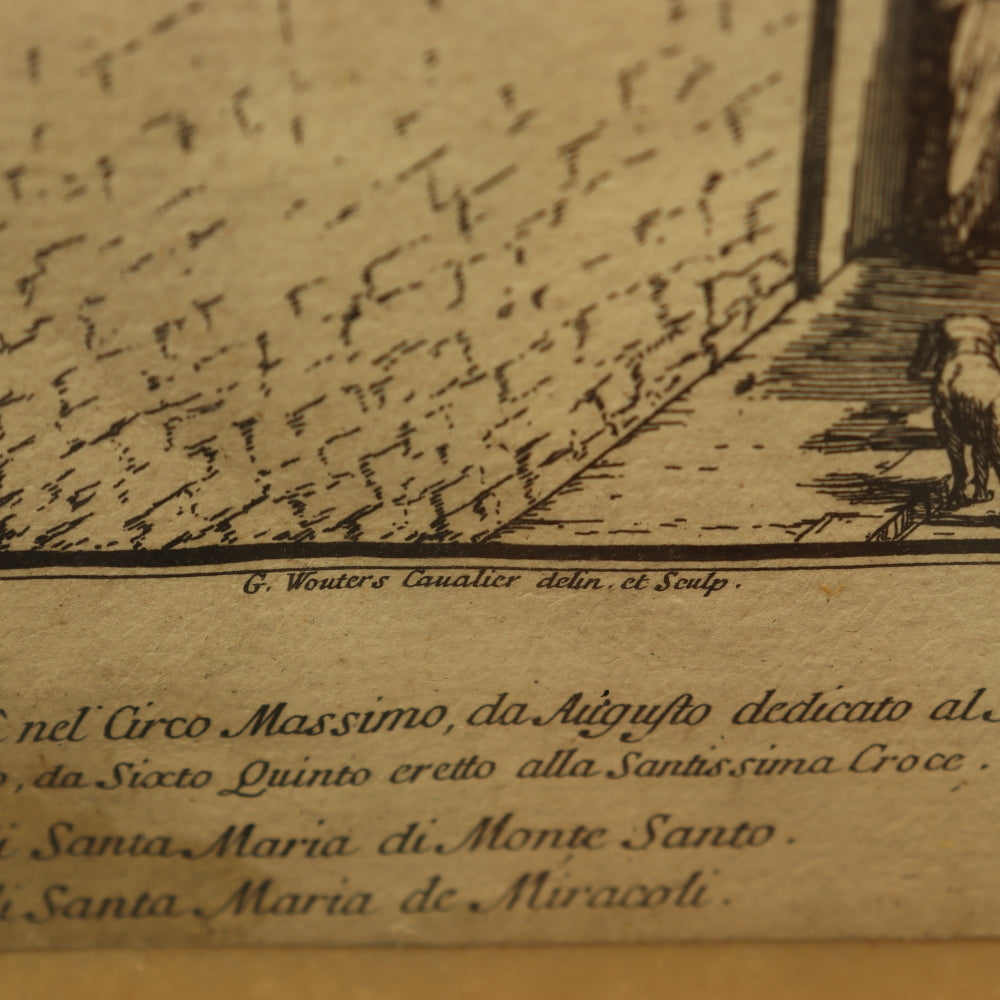 G. Wouters Caualier delin. et Sculp.
nel Circo Massimo, da Augusto dedicato al
, da Sixto Quinto eretto alla Santissima Croce.
Santa Maria di Monte Santo.
Santa Maria de Miracoli.